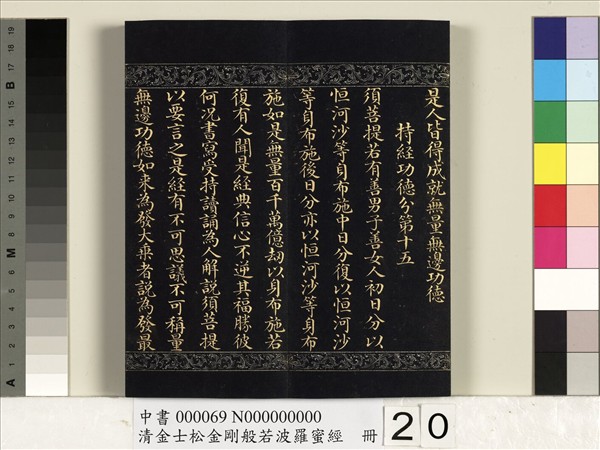 是人皆得成就無量無邊功德
持經功德分第十五
須菩提若有善男子善女人初日分以
恒河沙等身布施中日分復以恒河沙
等身布施後日分亦以恒河沙等身布
施如是無量百千萬億劫以身布施若
復有人聞是經典信心不逆其福勝彼
何況書寫受持讀誦為人解說須菩提
以要言之是經有不可思議不可稱量
無邊功德如來為發大乘者說為發最
中書 000069 N000000000
清金士松金剛般若波羅蜜經 冊
20
A 1 2 3 4 5 M 8 9 10 11 12 13 14 15 B 17 18 19